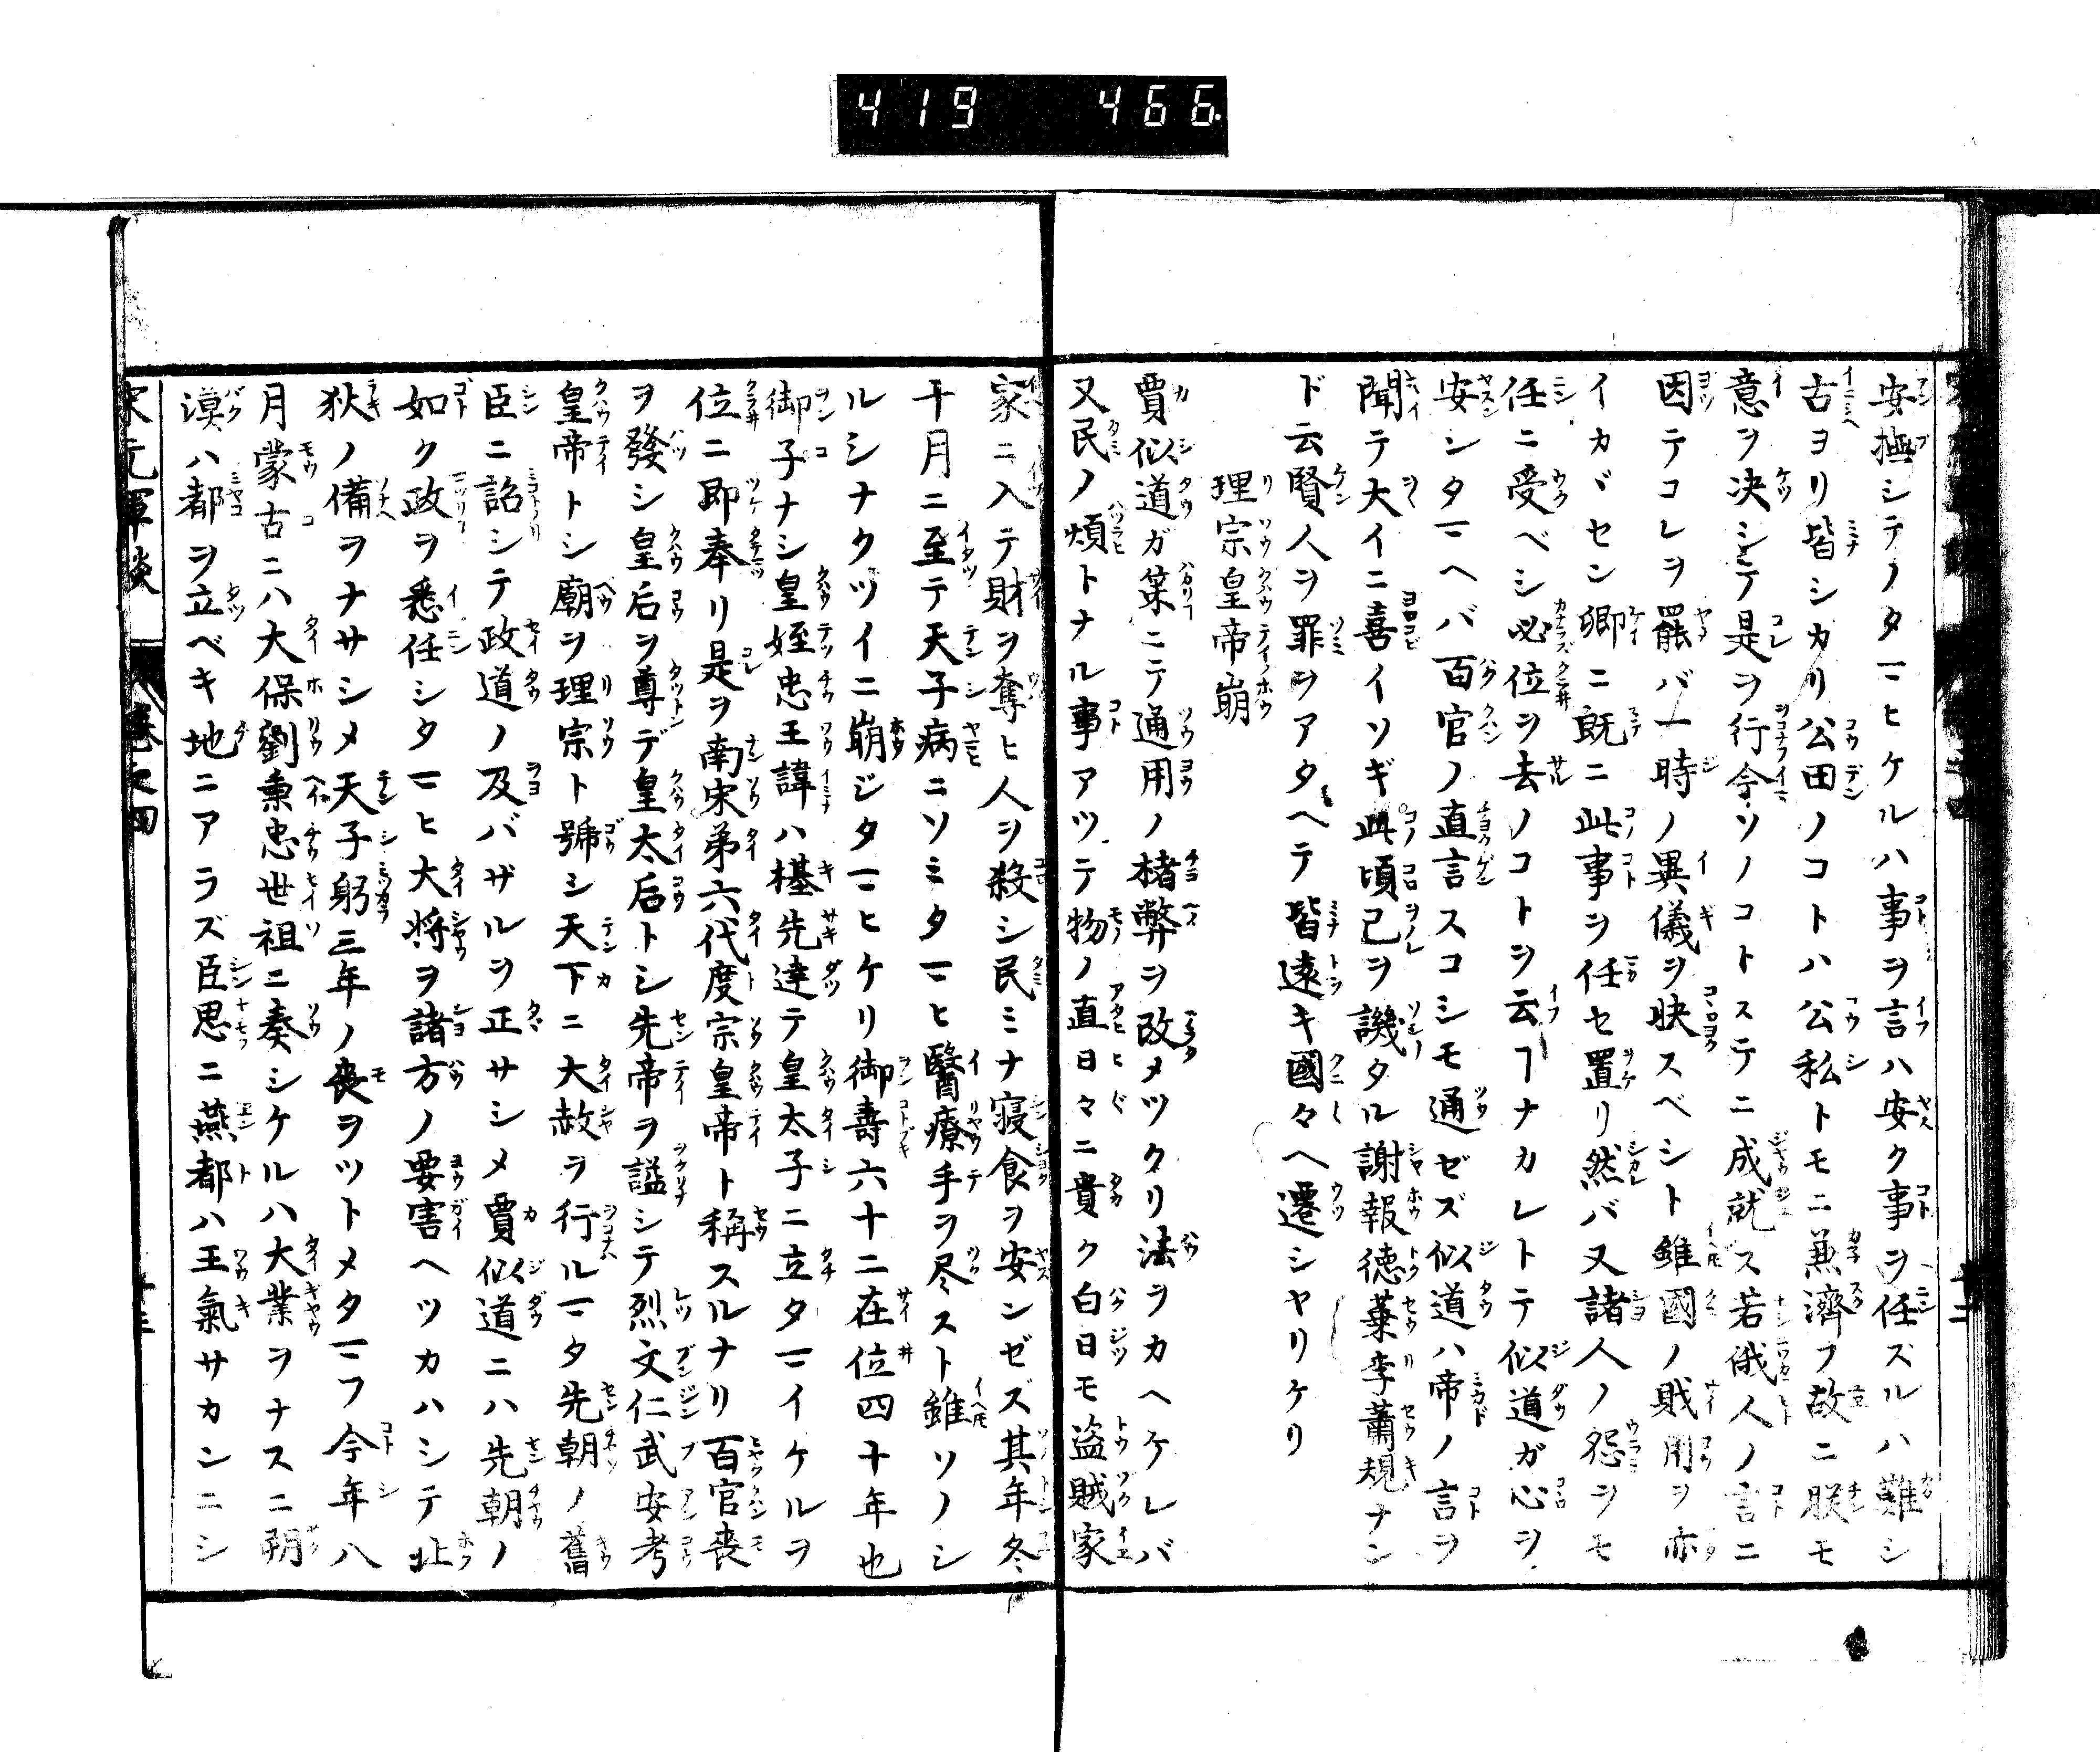 419 466.
安撫シテノタマヒケルハ事ヲ言ハ安ク事ヲ任スルハ難シ
古ヨリ皆シカリ公田ノコトハ公私トモニ兼濟フ故ニ朕モ
意ヲ决シテ是ヲ行今ソノコトステニ成就ス若俄人ノ言ニ
因テコレヲ罷バ一時ノ異儀ヲ快スベシト雖國ノ財用ヲ亦
イカヾセン卿ニ既ニ此事ヲ任セ置リ然バ又諸人ノ怨ヲモ
任ニ受ベシ必位ヲ去ノコトヲ云ヿナカレトテ似道ガ心ヲ
安シタマヘバ百官ノ直言スコシモ通ゼズ似道ハ帝ノ言ヲ
聞テ大イニ喜イソギ此頃己ヲ譏タル謝報徳葉李蕭規ナン
ド云賢人ヲ罪ヲアタヘテ皆遠キ國々ヘ遷シヤリケリ
理宗皇帝崩
賈似道ガ策ニテ通用ノ楮弊ヲ改メツクリ法ヲカヘケレバ
又民ノ煩トナル事アツテ物ノ直日々ニ貴ク白日モ盗賊家
家ニ入テ財ヲ奪ヒ人ヲ殺シ民ミナ寝食ヲ安ンゼズ其年冬
十月ニ至テ天子病ニソミタマヒ醫療手ヲ尽スト雖ソノシ
ルシナクツイニ崩ジタマヒケリ御壽六十二在位四十年也
御子ナシ皇姪忠王諱ハ基先達テ皇太子ニ立タマイケルヲ
位ニ即奉リ是ヲ南宋第六代度宗皇帝ト稱スルナリ百官喪
ヲ發シ皇后ヲ尊デ皇太后トシ先帝ヲ謚シテ烈文仁武安考
皇帝トシ廟ヲ理宗ト號シ天下ニ大赦ヲ行ルマタ先朝ノ舊
臣ニ詔シテ政道ノ及バザルヲ正サシメ賈似道ニハ先朝ノ
如ク政ヲ悉任シタマヒ大將ヲ諸方ノ要害ヘツカハシテ北
狄ノ備ヲナサシメ天子躬三年ノ喪ヲツトメタマフ今年八
月蒙古ニハ大保劉秉忠世祖ニ奏シケルハ大業ヲナスニ朔
漠ハ都ヲ立ベキ地ニアラズ臣思ニ燕都ハ王氣サカンニシ
宋元軍談 卷之四